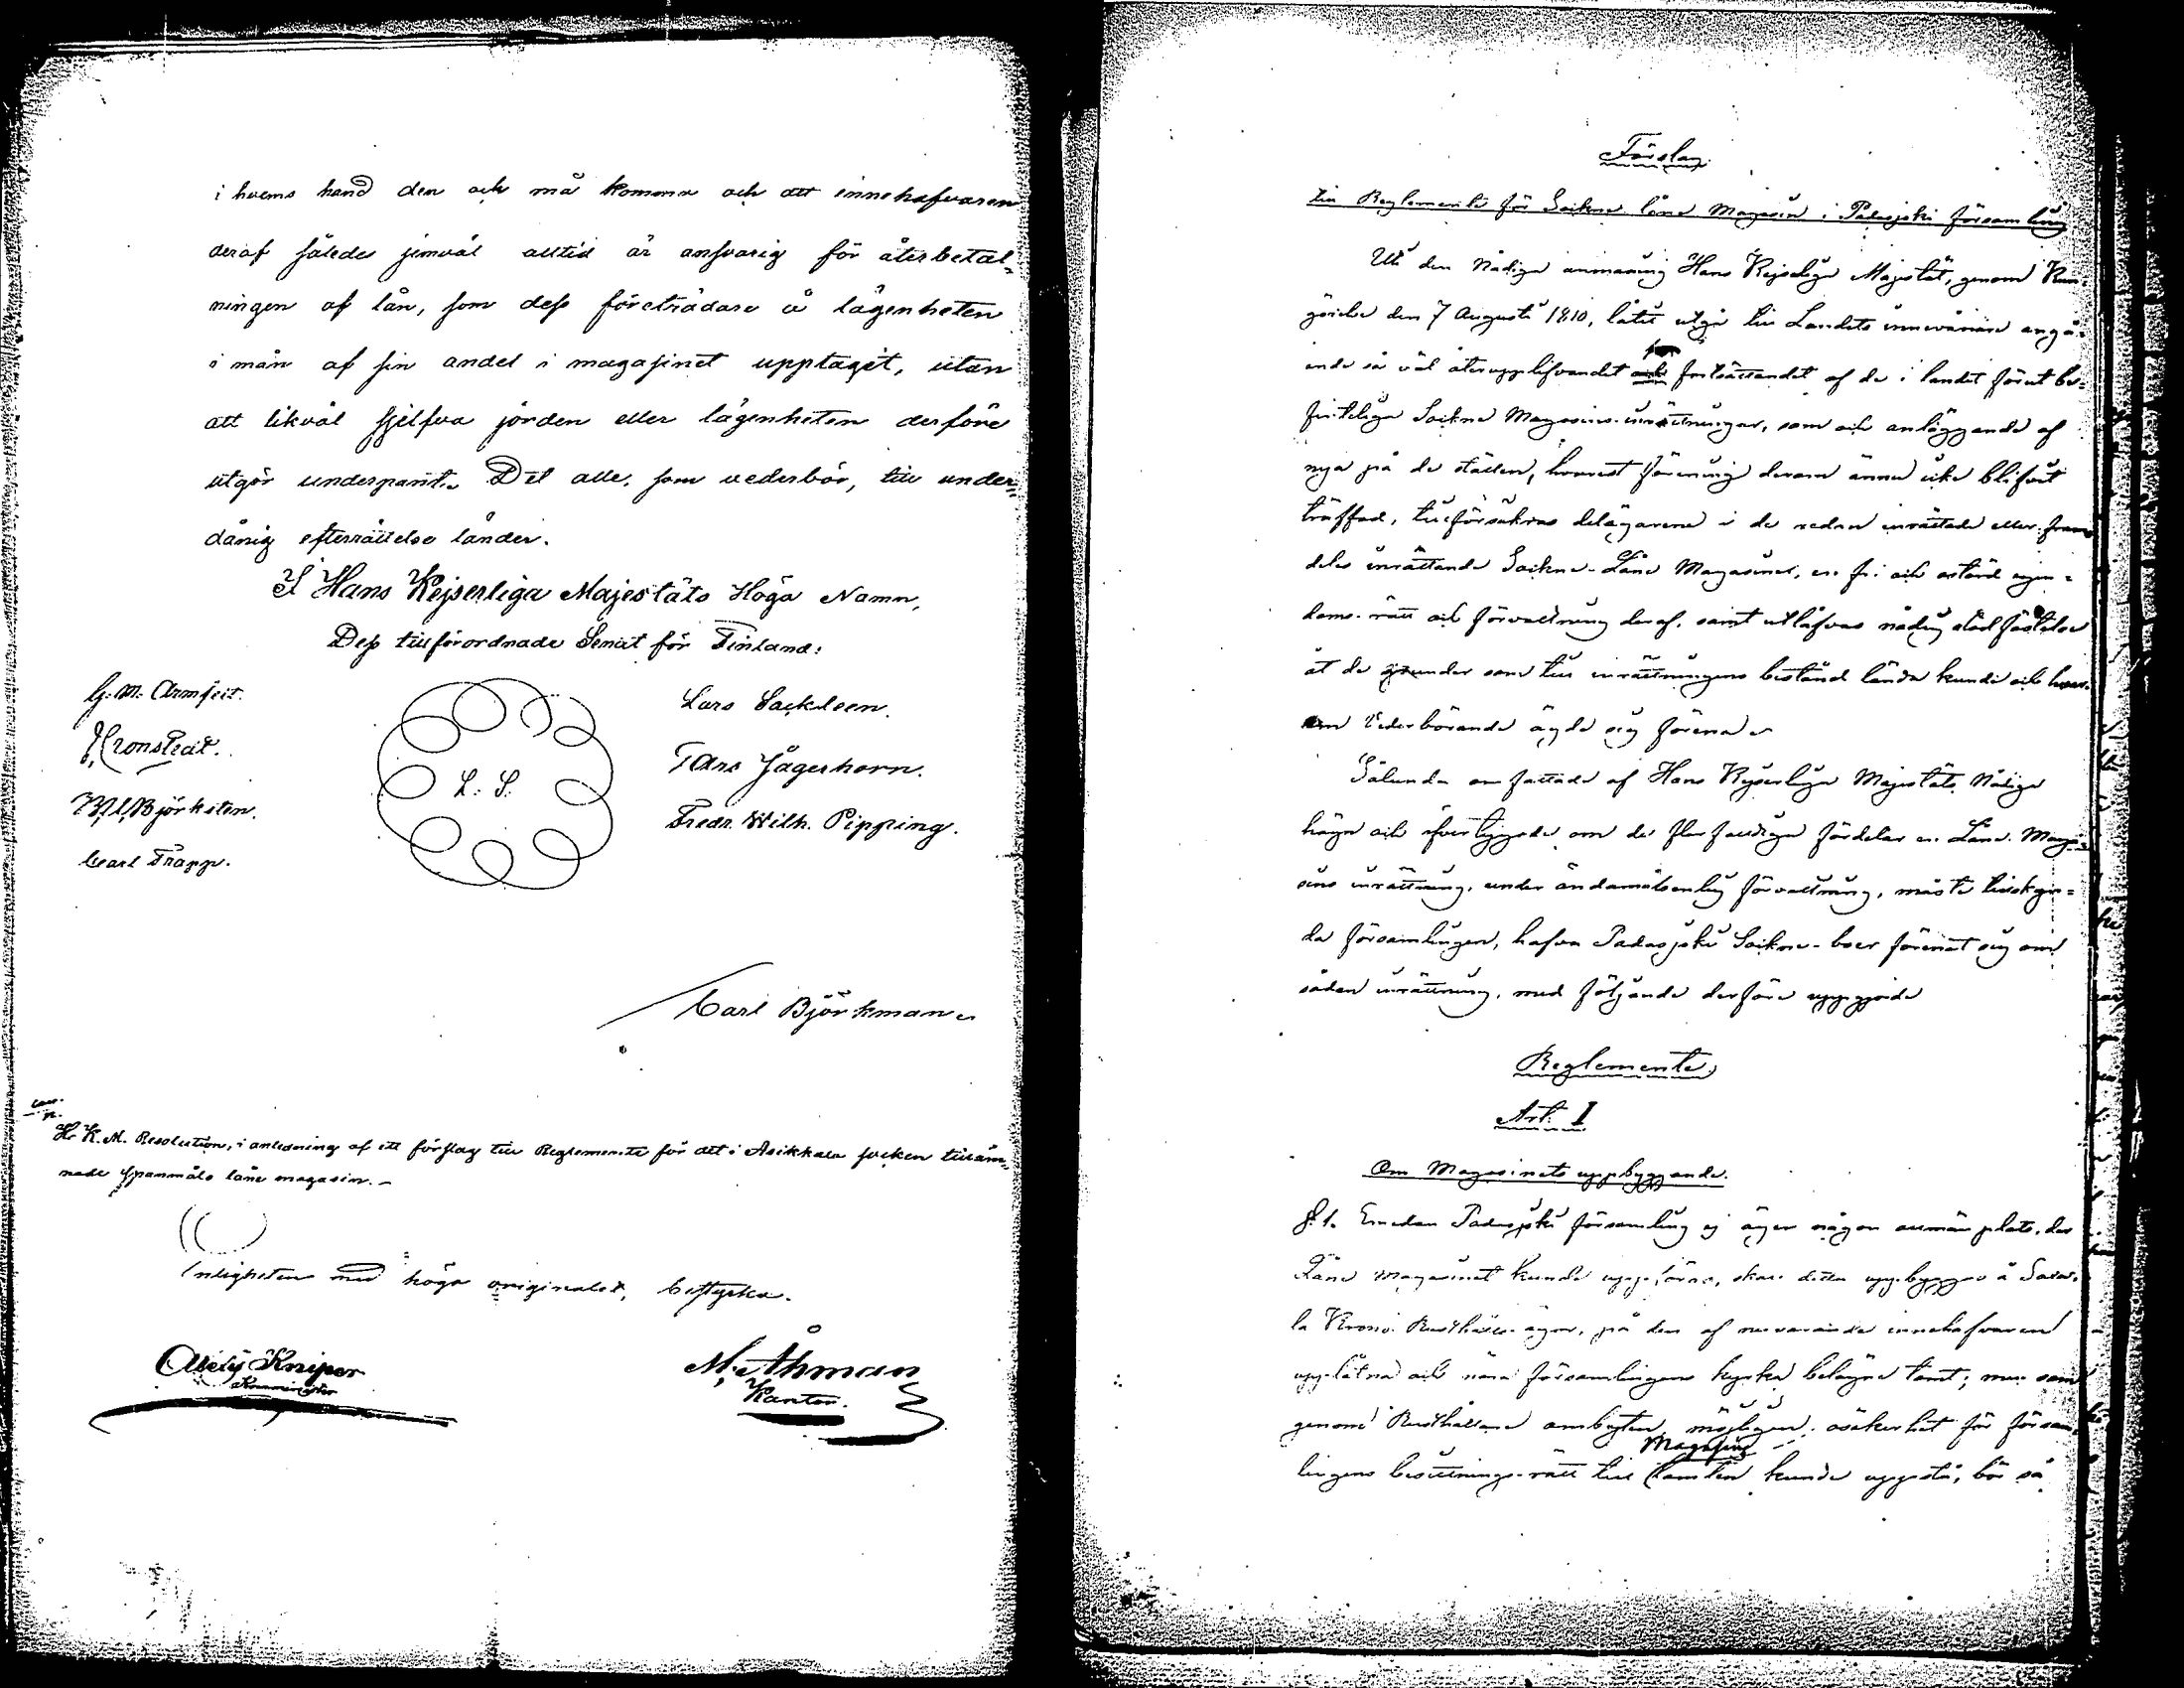 i hvems hand den och må komma och att innehafvaren
deraf således jemväl alltid är ansvarig för återbetal-
ningen af lån, som dess företrädare å lägenheten
i mån af sin andel i magasinet upptagit, utan
att likväl sjelfva jorden eller lägenheten derföre
utgör underpant. Det alle, som vederbör, till under-
dånig efterrättelse länder.
I Hans Kejserliga Majestäts Höga Namn,
Dess tillförordnade Senat för Finland:
G. M. Armfelt.
J. Cronstedt.
Björksten.
Carl Trapp.
L. S.
Lars Sackleen.
Ture Jägerhorn.
Fredr. Wilh. Pipping.
Carl Björkman
H. K. M. Resolution, i anledning af ett förslag till Reglemente för det i Asikkala socken tilläm-
nade spannmåls låne magasin.
Enligheten med höga originalet, bestyrka.
Kniper
M. Åhman
Kantor.
Förslag
till Reglemente för Sockne låne Magasin i Padasjoki församling
Uti den Nådiga anmaning Hans Kejserliga Majestät, genom Kun-
görelse den 7 Augusti 1810, låtit utgå till Landets innevånare angå-
ende så väl återupplifvandet och fortsättandet af de i landet förut be-
finteliga Sockne Magasins-inrättningar, som och anläggande af
nya på de ställen, hvarest förening derom ännu icke blifvit
träffad, tillförsäkras delägarene i de redan inrättade eller fram-
deles inrättande Sockne-Låne Magasiner, en fri och ostörd egen-
doms-rätt och förvaltning deraf, samt utlåfvas nådig stadfästelse
åt de grunder som till inrättningens bestånd lända kunde och hvar-
om Vederbörande ägde sig förena
Sålunda omfattade af Hans Kejserliga Majestäts Nådiga
hägn och öfvertygade om de flerfaldiga fördelar en Låne-Maga-
sins inrättning, under ändamålsenlig förvaltning, måste tillskyn-
da församlingen, hafva Padasjoki Sockne-boer förenat sig om
sådan inrättning, med följande derföre uppgjorde
Reglemente
Art. I
Om Magasinets uppbyggande.
§. 1. Emedan Padasjoki församling ej äger någon allmän plats, der
Låne magasinet kunde uppföras, skall detta uppbyggas å
la Krono Rusthålls ägor, på den af nuvarande innehafvaren
upplåtna och nära församlingens kyrka belägne tomt; men som
genom Rusthållarne ombyten möjligen osäkerhet för församm-
Magasins
lingens besittnings-rätt till tomten kunde uppstå, bör så